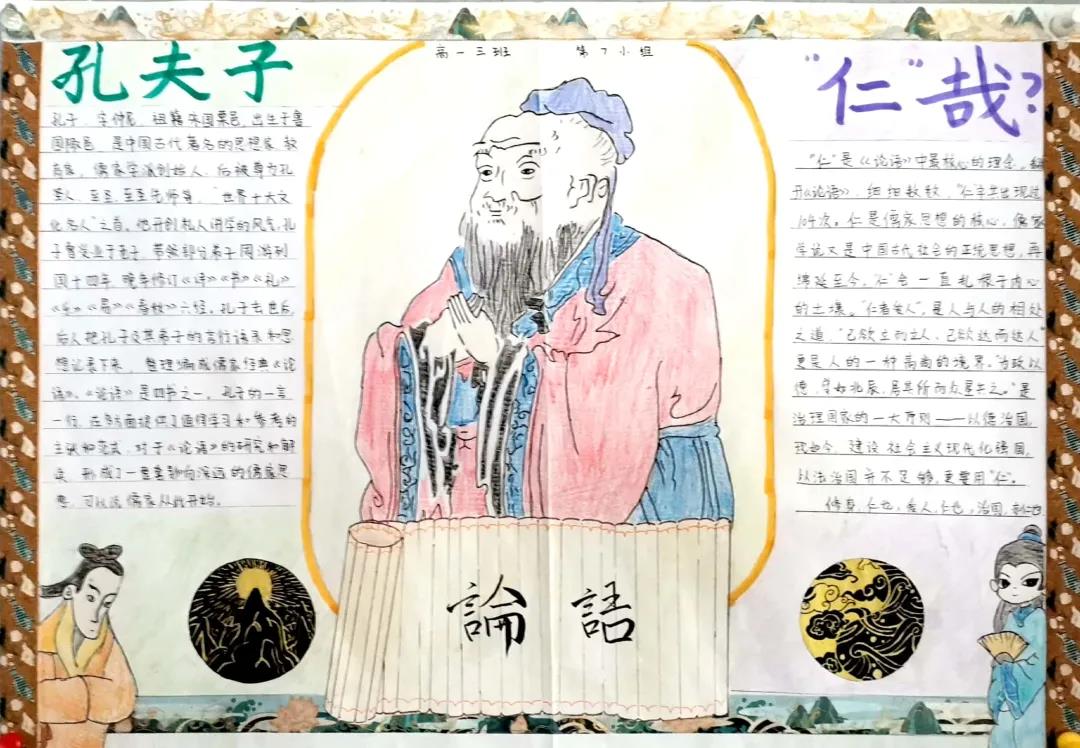 高一三班 第7小组
孔夫子
孔子，字仲尼，祖籍宋国栗邑，出生于鲁
国陬邑，是中国古代著名的思想家、教
育家，儒家学派创始人，后被尊为孔
圣人、至圣、至圣先师等，"世界十大文
化名人"之首。他开创私人讲学的风气，孔
子曾受业于老子，带领部分弟子周游列
国十四年，晚年修订《诗》《书》《礼》
《乐》《易》《春秋》六经。孔子去世后，
后人把孔子及其弟子的言行语录和思
想记录下来，整理编成儒家经典《论
语》。《论语》是四书之一，孔子的一言
一行，在多方面提供了值得学习和参考的
主张和范式，对于《论语》的研究和解
读，形成了一套影响深远的儒家思
想，可以说儒家从此开始。
"仁"哉?
"仁"是《论语》中最核心的理念。翻
开《论语》，细细数数，"仁"字共出现过
104次。仁是儒家思想的核心，儒家
学说又是中国古代社会的正统思想，再
绵延至今，"仁"会一直扎根于内心
的土壤。"仁者爱人"，是人与人的相处
之道，"己欲立而立人，己欲达而达人"
更是人的一种高尚的境界。"为政以
德，譬如北辰，居其所而众星共之。"是
治理国家的一大原则——以德治国，
现如今，建设社会主义现代化强国，
以法治国并不足够，更要用"仁"。
修身，仁也，爱人，仁也，治国，亦仁也
論語